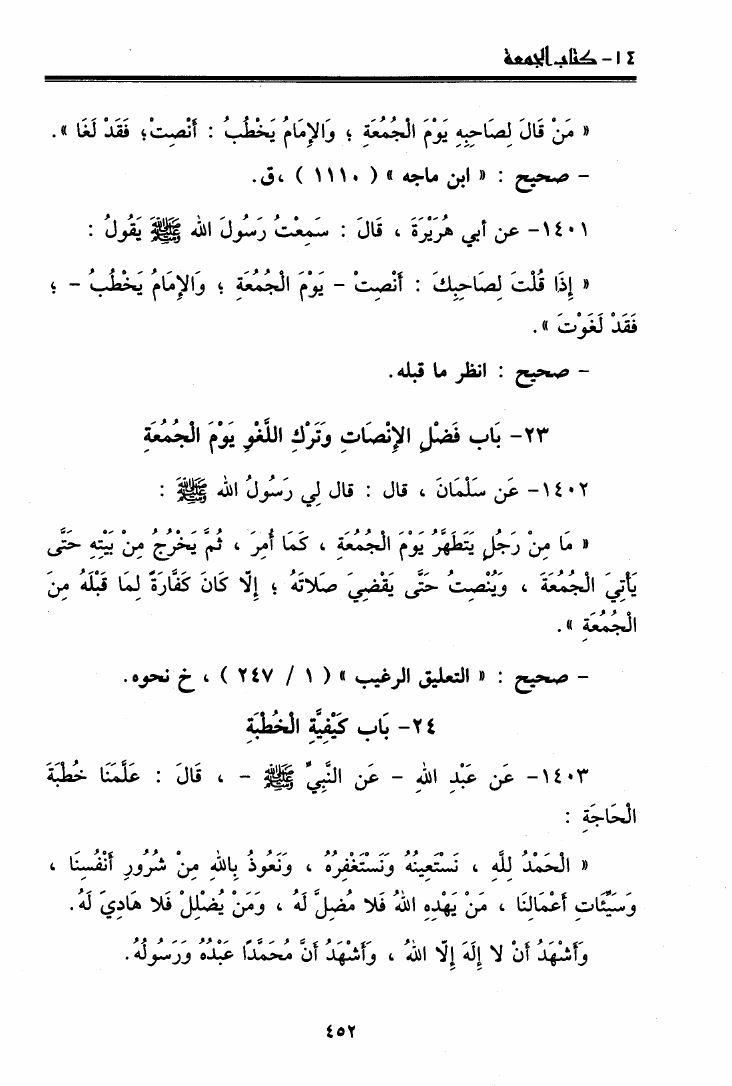 ١٤- كتاب الجمعة
« مَنْ قَالَ لِصَاحِبِهِ يَوْمَ الْجُمُعَةِ ؛ وَالإِمَامُ يَخْطُبُ : أَنْصِتْ؛ فَقَدْ لَغَا ».
- صحيح : « ابن ماجه » ( ١١١٠ ) ،ق.
١٤٠١- عن أبي هُرَيْرَةَ ، قَالَ : سَمِعْتُ رَسُولَ الله ﷺ يَقُولُ :
« إِذَا قُلْتَ لِصَاحِبِكَ : أَنْصِتْ – يَوْمَ الْجُمُعَةِ ؛ وَالإِمَامُ يَخْطُبُ – ؛
فَقَدْ لَغَوْتَ ».
- صحيح : انظر ما قبله.
٢٣- بَاب فَضْلِ الإِنْصَاتِ وَتَرْكِ اللَّغْوِ يَوْمَ الْجُمُعَةِ
١٤٠٢- عَن سَلْمَانَ ، قال : قال لِي رَسُولُ الله ﷺ :
« مَا مِنْ رَجُلٍ يَتَطَهَّرُ يَوْمَ الْجُمُعَةِ ، كَمَا أُمِرَ ، ثُمَّ يَخْرُجُ مِنْ بَيْتِهِ حَتَّى
يَأْتِيَ الْجُمُعَةَ ، وَيُنْصِتُ حَتَّى يَقْضِيَ صَلاَتَهُ ؛ إِلَّا كَانَ كَفَّارَةً لِمَا قَبْلَهُ مِنَ
الْجُمُعَةِ ».
- صحيح : « التعليق الرغيب » ( ١ / ٢٤٧ ) ، خ نحوه.
٢٤- بَاب كَيْفِيَّةِ الْخُطْبَةِ
١٤٠٣- عَن عَبْدِ اللهِ – عَن النَّبِيِّ ﷺ – ، قَالَ : عَلَّمَنَا خُطْبَةَ
الْحَاجَةِ :
« الْحَمْدُ لِلَّهِ ، نَسْتَعِينُهُ وَنَسْتَغْفِرُهُ ، وَنَعُوذُ بِاللهِ مِنْ شُرُورِ أَنْفُسِنَا ،
وَسَيِّئَاتِ أَعْمَالِنَا ، مَنْ يَهْدِهِ اللهُ فَلا مُضِلَّ لَهُ ، وَمَنْ يُضْلِلْ فَلا هَادِيَ لَهُ.
وَأَشْهَدُ أَنْ لا إِلَهَ إِلَّا اللهُ ، وَأَشْهَدُ أَنَّ مُحَمَّدًا عَبْدُهُ وَرَسُولُهُ.
٤٥٢